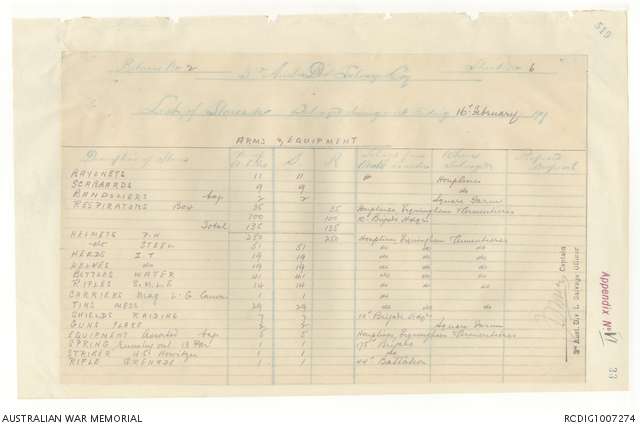 510
Return No 2 3rd Aust. Div Salvage Coy Sheet No 6
List of Stores Salvaged during week ending 16th February 191
ARMS & EQUIPMENT
Description of Stores S R Where Salvaged Proposed Disposal
BAYONETS 11 11 Houplines
SCABBARDS 9 9 do
BANDOLIERS 2 2 Square Farm
RESPIRATORS Box 35 35 Houplines Armentieres
100 100 10th Brigade Hdqrs
Total 135 135
HELMETS P.H. 250 250 Houplines Armentieres
do STEEL 51 51 do do do
HEADS I.T 19 19 do do do
HELVES do 19 19 do do do
BOTTLES WATER 41 41 do do do
RIFLES S.M.L.E 14 14 do do do
CARRIERS Mag L.G. Canvas 1 1 do
TINS MESS 29 29 do do do
SHIELDS RAIDING 7 7 10th Brigade Hdqrs
GUNS FLARE 2 2 Square Farm
EQUIPMENT 5 5 Houplines Armentieres
SPRING Running out 18 Pdr 1 1 175 Brigade
STRIKER 4.5" Howitzer 1 1 do
RIFLE GRENADE 1 1 44th Battalion
Captain
3rd Aust. Div l. Salvage Officer
Appendix No VI
33
AUSTRALIAN WAR MEMORIAL RCDIG1007274